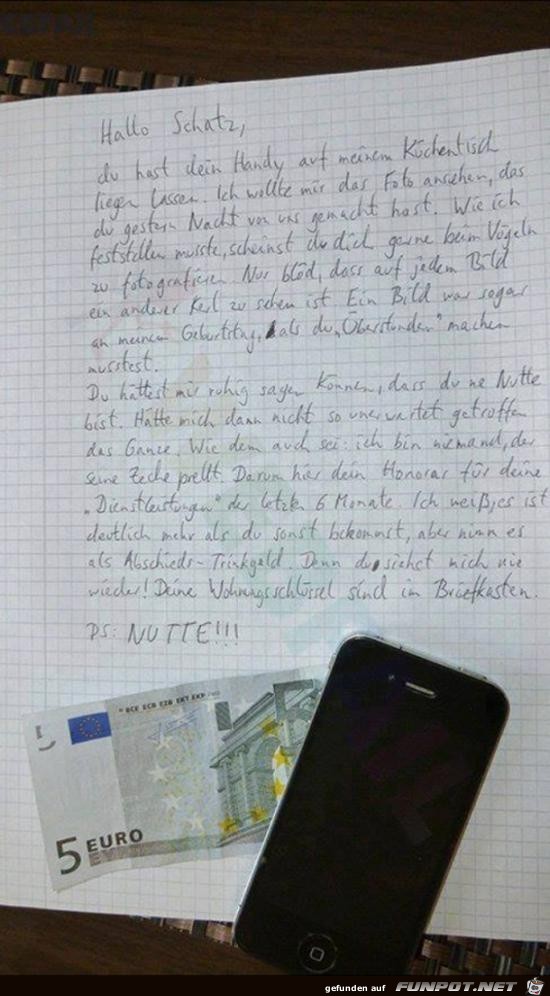 Hallo Schatz,
du hast dein Handy auf meinem Küchentisch
liegen lassen. Ich wollte mir das Foto ansehen, das
du gestern Nacht von uns gemacht hast. Wie ich
feststellen musste, scheinst du dich gerne beim Vögeln
zu fotografieren. Nur blöd, dass auf jedem Bild
ein anderer Kerl zu sehen ist. Ein Bild war sogar
an meinem Geburtstag, als du „Überstunden" machen
musstest.
Du hättest mir ruhig sagen können, dass du ne Nutte
bist. Hätte mich dann nicht so unerwartet getroffen
das Ganze. Wie dem auch sei: ich bin niemand, der
seine Zeche prellt. Darum hier dein Honorar für deine
„Dienstleistungen" der letzten 6 Monate. Ich weiß, es ist
deutlich mehr als du sonst bekommst, aber nimm es
als Abschieds-Trinkgeld. Denn du siehst mich nie
wieder! Deine Wohnungsschlüssel sind im Briefkasten.
PS: NUTTE!!!
BCE ECB EZB EKT EKP
5
5 EURO
ΕΥΡΩ
gefunden auf FUNPOT.NET